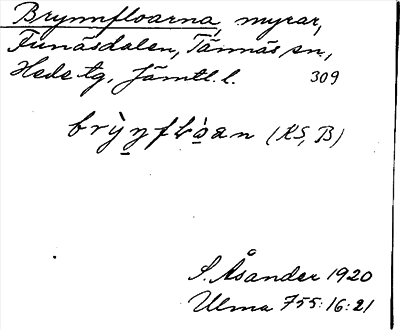 Brynnfloarna, myrar,
Funäsdalen, Tännäs sn.,
Hede tg, Jämtl. l. 309
brỳn̲flȯ̲an (KS, B)
S. Åsander 1920
Ulma 755:16:21